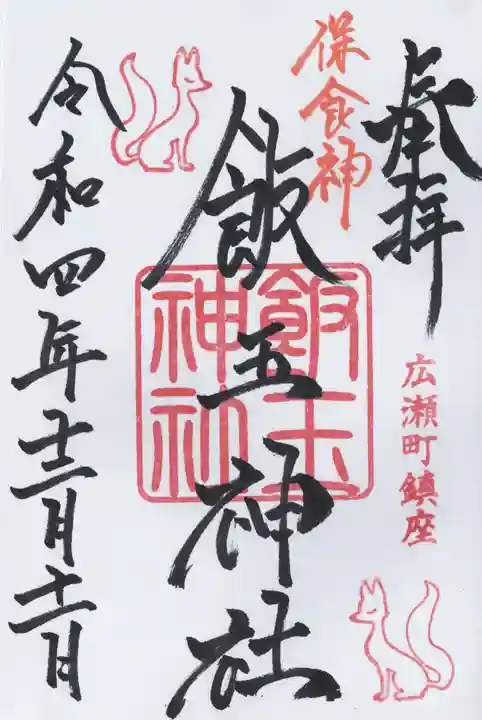 奉拝
広瀬町鎮座
保食神
飯玉神社
飯玉神社
令和四年十二月十二日